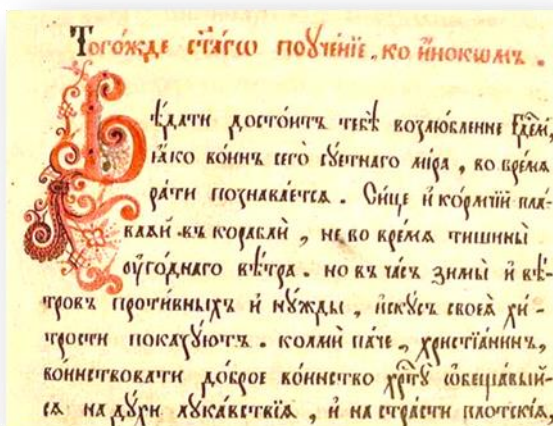 Тогѡ́жде ст҃а́гѡ поуче́нїе, ко и҆́нокѡмъ.
Вѣ́дати досто́итъ тебѣ̀ возлю́бленне
ꙗ҆́ко во́инъ сегѡ̀ сꙋ́етнагѡ мі́ра, во вре́мѧ
ра́ти познава́етсѧ. Си́це и҆ ко́рмчїй пла́-
ваѧй въ кораблѝ, не во вре́мѧ тишины̀
ᲂу҆го́днагѡ вѣ́тра. но въ ча́съ зимы̀ и҆ вѣ́-
тровъ проти́вныхъ и҆ нꙋ́жды, и҆скꙋ́съ своеѧ̀ хи́-
трости показꙋ́ютъ. кольмѝ па́че, христїа́нинъ,
во́инствовати до́брое во́инство хрⷭ҇тꙋ̀ ѡ҆бѣща́вый-
сѧ на дꙋ́хи лꙋка́вствїѧ, и҆ на стра́сти плотскі́ѧ,